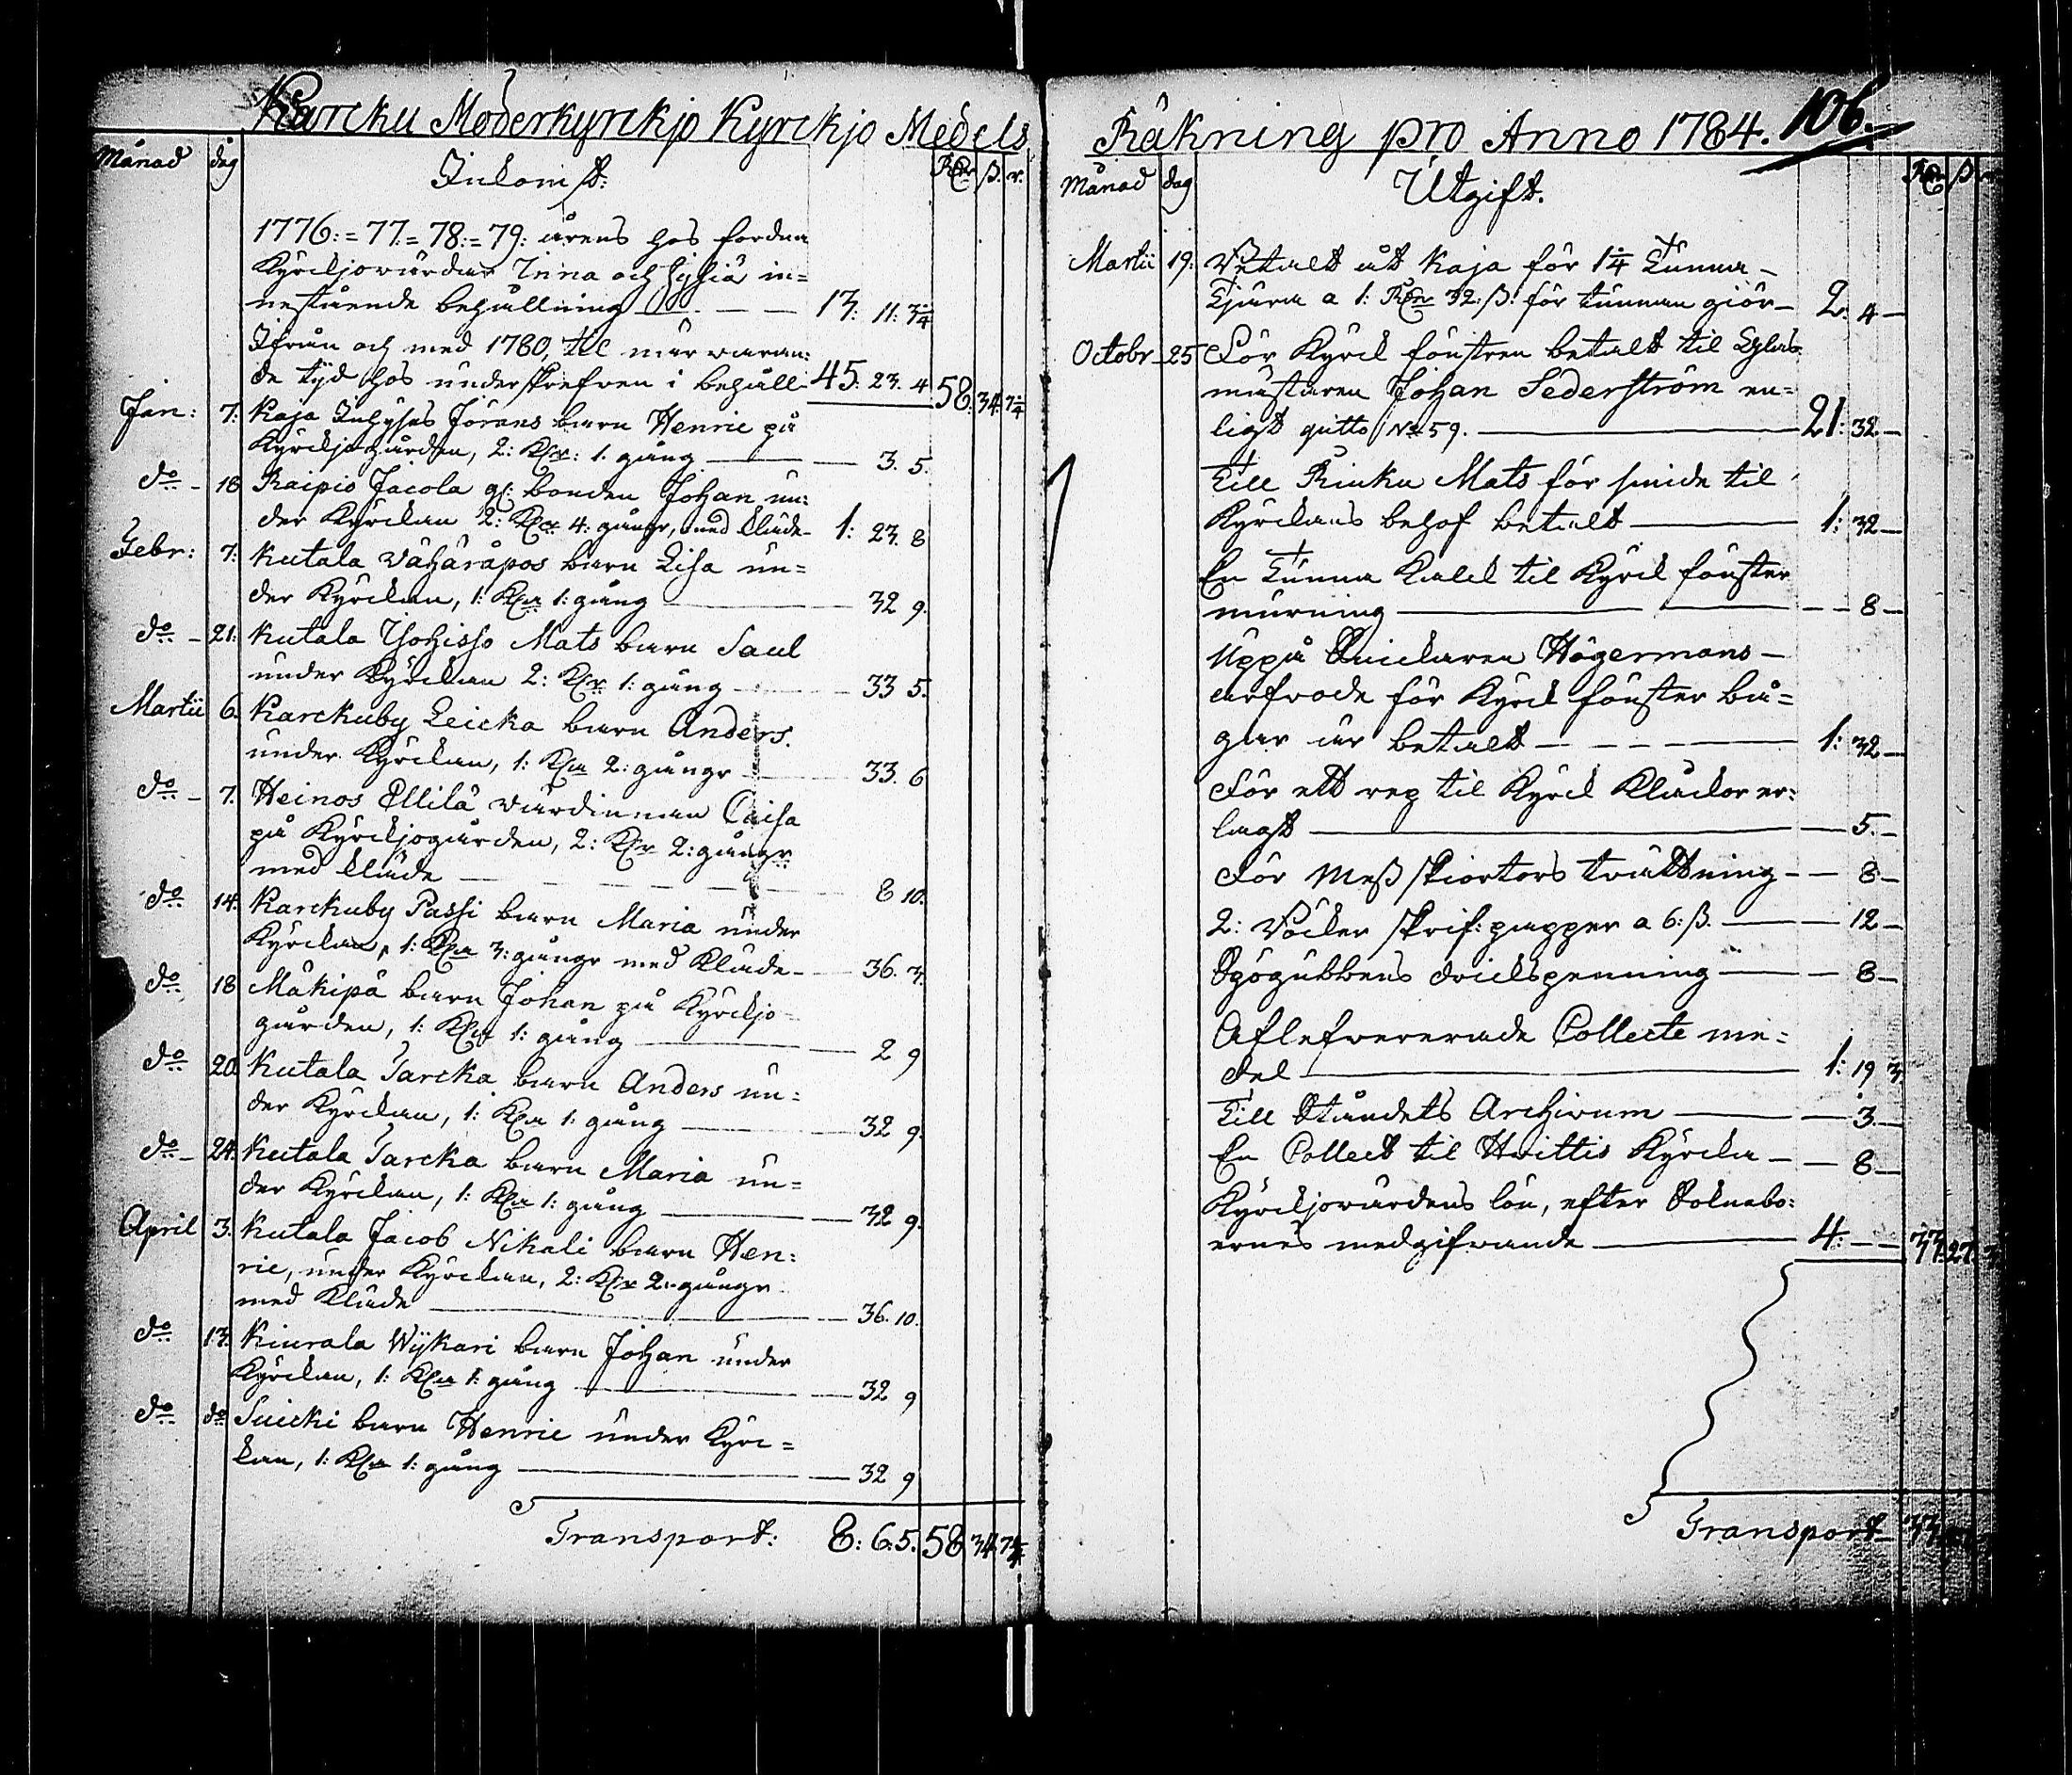 Karcku Moderkyrckjo Kyrckjo Medels
Månad dag Inkomst: Rdr ß. r.
1776:=77:=78:=79: årens hos fordna
Kyrckjovärdar Inna och in=
nestående behållning — 13: 11: 3 1/4
Ifrån och med 1780, til närvaran:
de tijd hos underskrefven i behåll 45: 23. 4 58: 34: 7 1/4
Jan: 7: Kaja Inhyses Jörans barn Henric på
Kyrckjogården, 2: Klr: 1. gång — 3. 5.
do — 18 Raipio Jacola gl: bonden Johan un:
der Kyrckan 2: Klr 4: gångr, med kläde — 1: 23. 8
Febr: 7: Kutala Vähäråpos barn Lisa un=
der Kyrckan, 1: Kla 1: gång — 32 9.
do — 21: Kutala Yohisso Mats barn Saul
under Kyrckan 2: Klr 1: gång — 33 5.
Martii 6. Karckuby Leicka barn Anders.
under Kyrckan, 1: Kla 2: gångr — 33. 6
do — 7. Heinos Ellilä värdinnan Caisa
på Kyrckjogården, 2: Klr 2: gångr
med kläde — 8 10.
do 14. Karckuby Passi barn Maria under
Kyrckan, 1: Kla 3: gångr med Kläde — 36. 3.
do 18 Mäkipä barn Johan på Kyrckjo=
gården, 1: Kla 1: gång — 2 9
do 20. Kutala Jarcka barn Anders un=
der Kyrckan, 1: Kla 1: gång — 32 9.
do — 24. Kutala Jarcka barn Maria un=
der Kyrckan, 1: Kla 1: gång — 32 9.
April 3. Kutala Jacob Nikali barn Hen:
ric, under Kyrckan, 2: Klr 2: gångr
med Kläde — 36. 10.
do 13. Kiurala Wijkari barn Johan under
Kyrckan, 1: Kla 1: gång — 32 9
do do Suicki barn Henric under Kyrc=
kan, 1: Kla 1: gång — 32 9
Transport: 8: 6: 5. 58 34 7 1/4
Räkning pro Anno 1784. 106.
Månad dag Utgift. Rdr ß
Martii 19: Betalt åt Kaja för 1 1/4 Tunna
Tjära a 1: Rdr 32: ß: för tunnan giör — 2. 4 —
Octobr 25 För Kyrck fönstren betalt til Glas
mästaren Johan Sederström en=
ligt qvitto No 59. — 21: 32 —
Till Rinku Mats för smide til
Kyrckans behof betalt — 1: 32 —
En Tunna Kalck til Kyrck fönster
murning — 8 —
Uppå Snickaren Högermans —
arfvode för Kyrck fönster bå=
gar är betalt — 1: 32 —
För ett rep til Kyrck Klockor er:
lagt — 5. —
För Meß skiortors tvättning — 8 —
2: Böcker skrif: papper a 6: ß. — 12 —
Spögubbens dricks penning — 8 —
Aflefvererade Collecte me=
del — 1: 19 3.
Till Ståndets Archivum — 3. —
En Collect til Hvittis Kyrcka — 8 —
Kyrckjovärdens lön, efter Soknebo:
ernes medgifvande — 4: — 33. 27. 3
Transport — 33